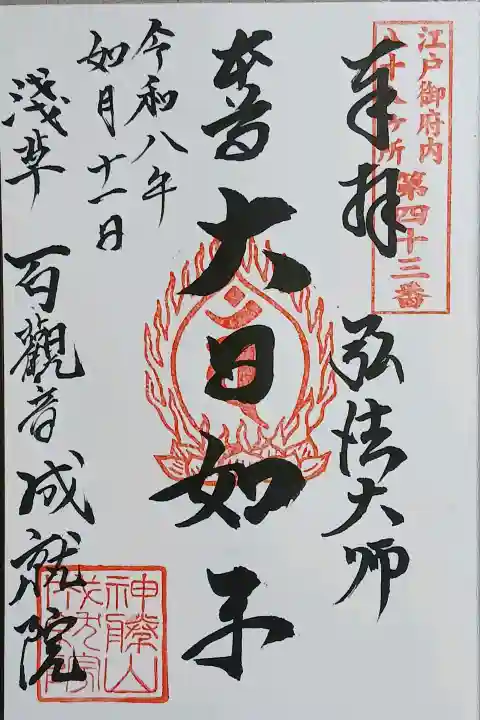 江戸御府内
八十八ヶ所 第四十三番
奉拝 弘法大师
本尊
大日如来
令和八年
如月十一日
浅草 百觀音 成就院
神勝山
成就院